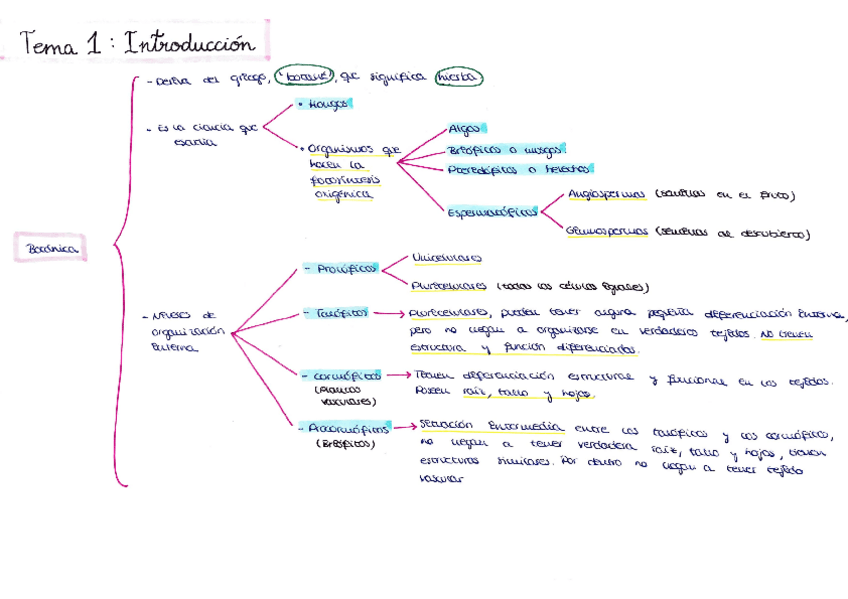 Tema 1: Introducción
- Deriva del griego, "botané", que significa hierba
- Es la ciencia que
estudia
• Hongos
• Organismos que
hacen la
fotosíntesis
oxigénica
Algas
Briófitos o musgos.
Pteridófitos o helechos
Espermatófitos
Angiospermas (semillas en el fruto)
Gimnospermas (semillas al descubierto)
Botánica
- Niveles de
organización
interna
- Protófitos
Unicelulares
Pluricelulares (todas las células iguales)
- Talófitos
Pluricelulares, pueden tener alguna pequeña diferenciación interna,
pero no llegan a organizarse en verdaderos tejidos. No tienen
estructura y función diferenciadas.
- Cormófitos
(plantas
vasculares)
Tienen diferenciación estructural y funcional en los tejidos.
Poseen raíz, tallo y hojas.
- Protocormófitos
(Briófitos)
Situación intermedia entre los talófitos y los cormófitos,
no llegan a tener verdadera raíz, tallo y hojas, tienen
estructuras similares. Por dentro no llegan a tener tejido
vascular